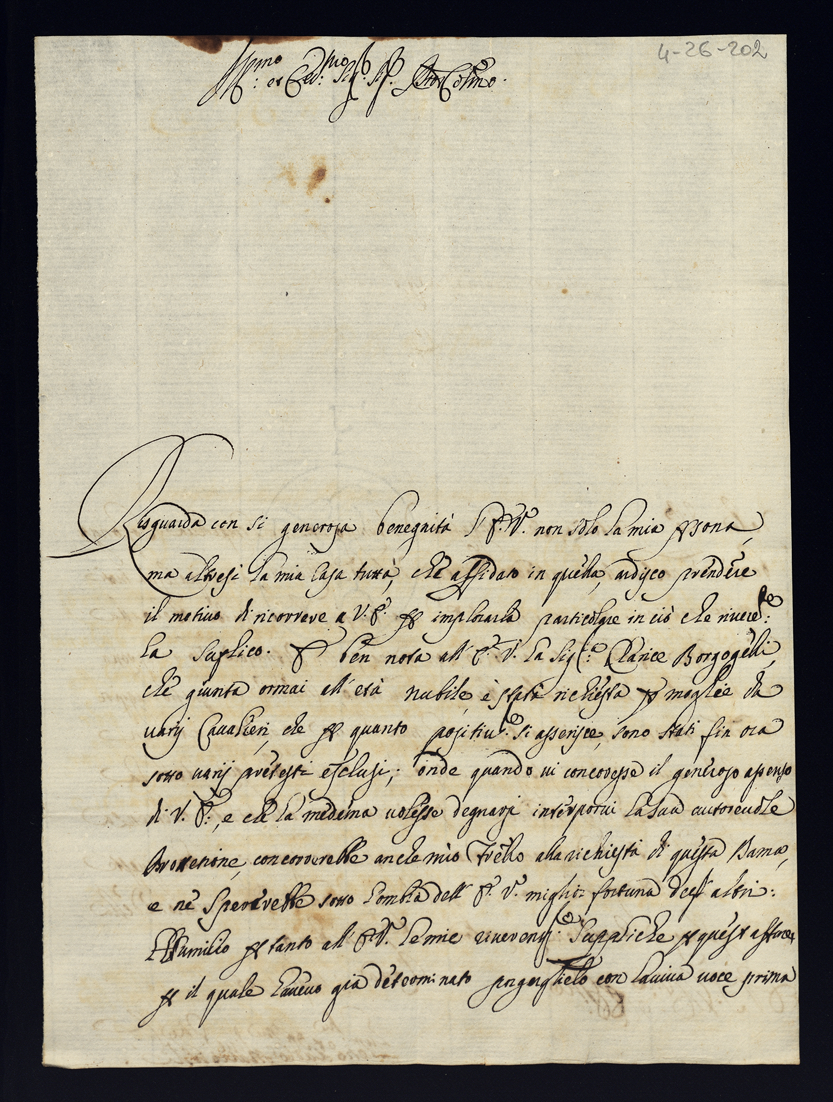 4-26-202
Ill.mo et Ecc.mo Sig.r Sig.r P.ron Col.mo
Risguarda con si generosa benegnità l'E. V. non solo la mia p̱sona,
ma altresi la mia Casa tutta, che affidato in quella, ardisco prendere
il motivo di ricorrere a V. E. p̱ implorarla particolare in ciò che rivere:te
la suplico. È ben nota all'E. V. la Sig.ra Clarice Borgogelli,
che giunta ormai all'età nubile, è stata richiesta p̱ moglie da
varij Cavalieri, che p̱ quanto positiv.te si asserisce, sono stati fin ora
sotto varij pretesti esclusi; onde quando vi concoresse il generoso assenso
di V. E., e che la medema volesse degnarsi interporvi la sua autorevole
Protetione, concorerebbe anche mio Frello alla richiesta di questa Dama,
e ne sperarebbe sotto l'ombra dell'E. V. miglior fortuna degl'altri:
Humilio p̱ tanto all'E. V. le mie riverenti Suppliche p̱ quest'affare,
p̱ il quale havevo già determinato porgerglielo con la viva voce prima